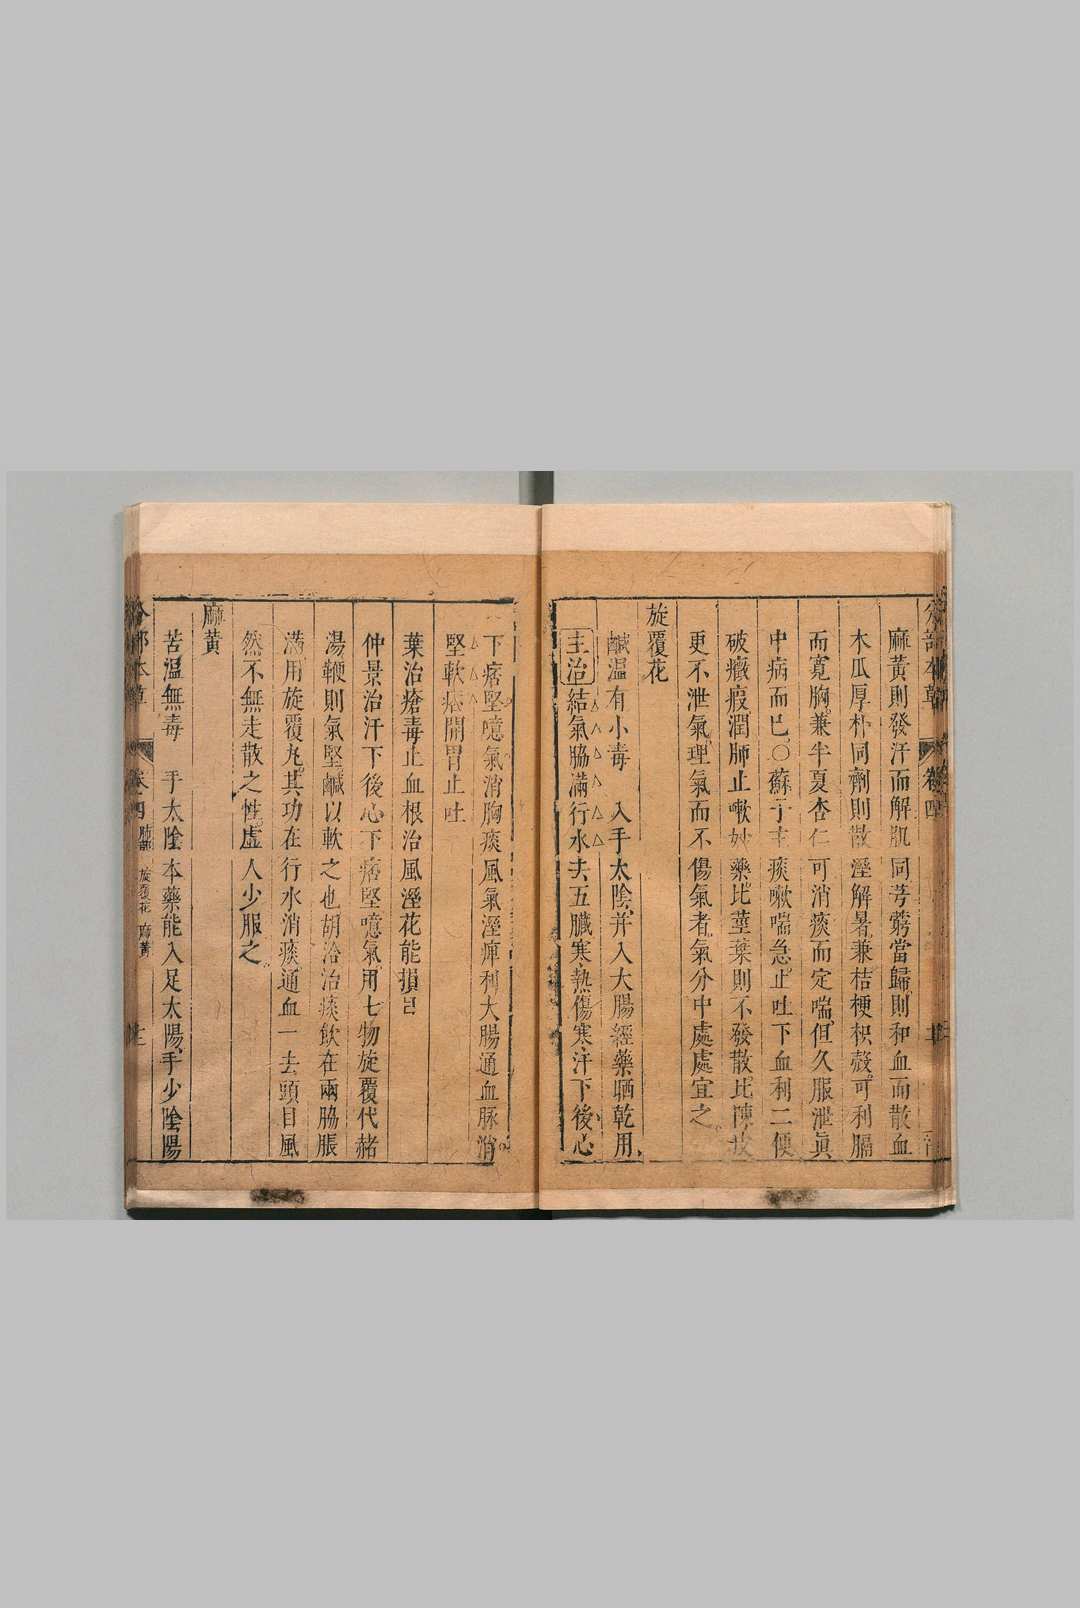 麻黃則發汗而解肌同芎藭當歸則和血而散血
木瓜厚朴同劑則散溼解暑兼桔梗枳殼可利膈
而寬胸兼半夏杏仁可消痰而定喘但久服泄眞
中病而已○蘇子主痰嗽喘急止吐下血利二便
破癥瘕潤肺止嗽妙藥比莖葉則不發散比陳皮
更不泄氣理氣而不傷氣者氣分中處處宜之
旋覆花
鹹溫有小毒 入手太陰并入大腸經藥晒乾用
主治結氣脇滿行水去五臟寒熱傷寒汗下後心
下痞堅噫氣消胸痰風氣溼痺利大腸通血脉消
堅軟痞開胃止吐
葉治瘡毒止血根治風溼花能損目
仲景治汗下後心下痞堅噫氣用七物旋覆代赭
湯鞕則氣堅鹹以軟之也胡洽治痰飲在兩脇脹
滿用旋覆丸其功在行水消痰通血一去頭目風
然不無走散之性虛人少服之
麻黃
苦溫無毒 手太陰本藥能入足太陽手少陰陽
分部本草 卷四 肺部 旋覆花 麻黃